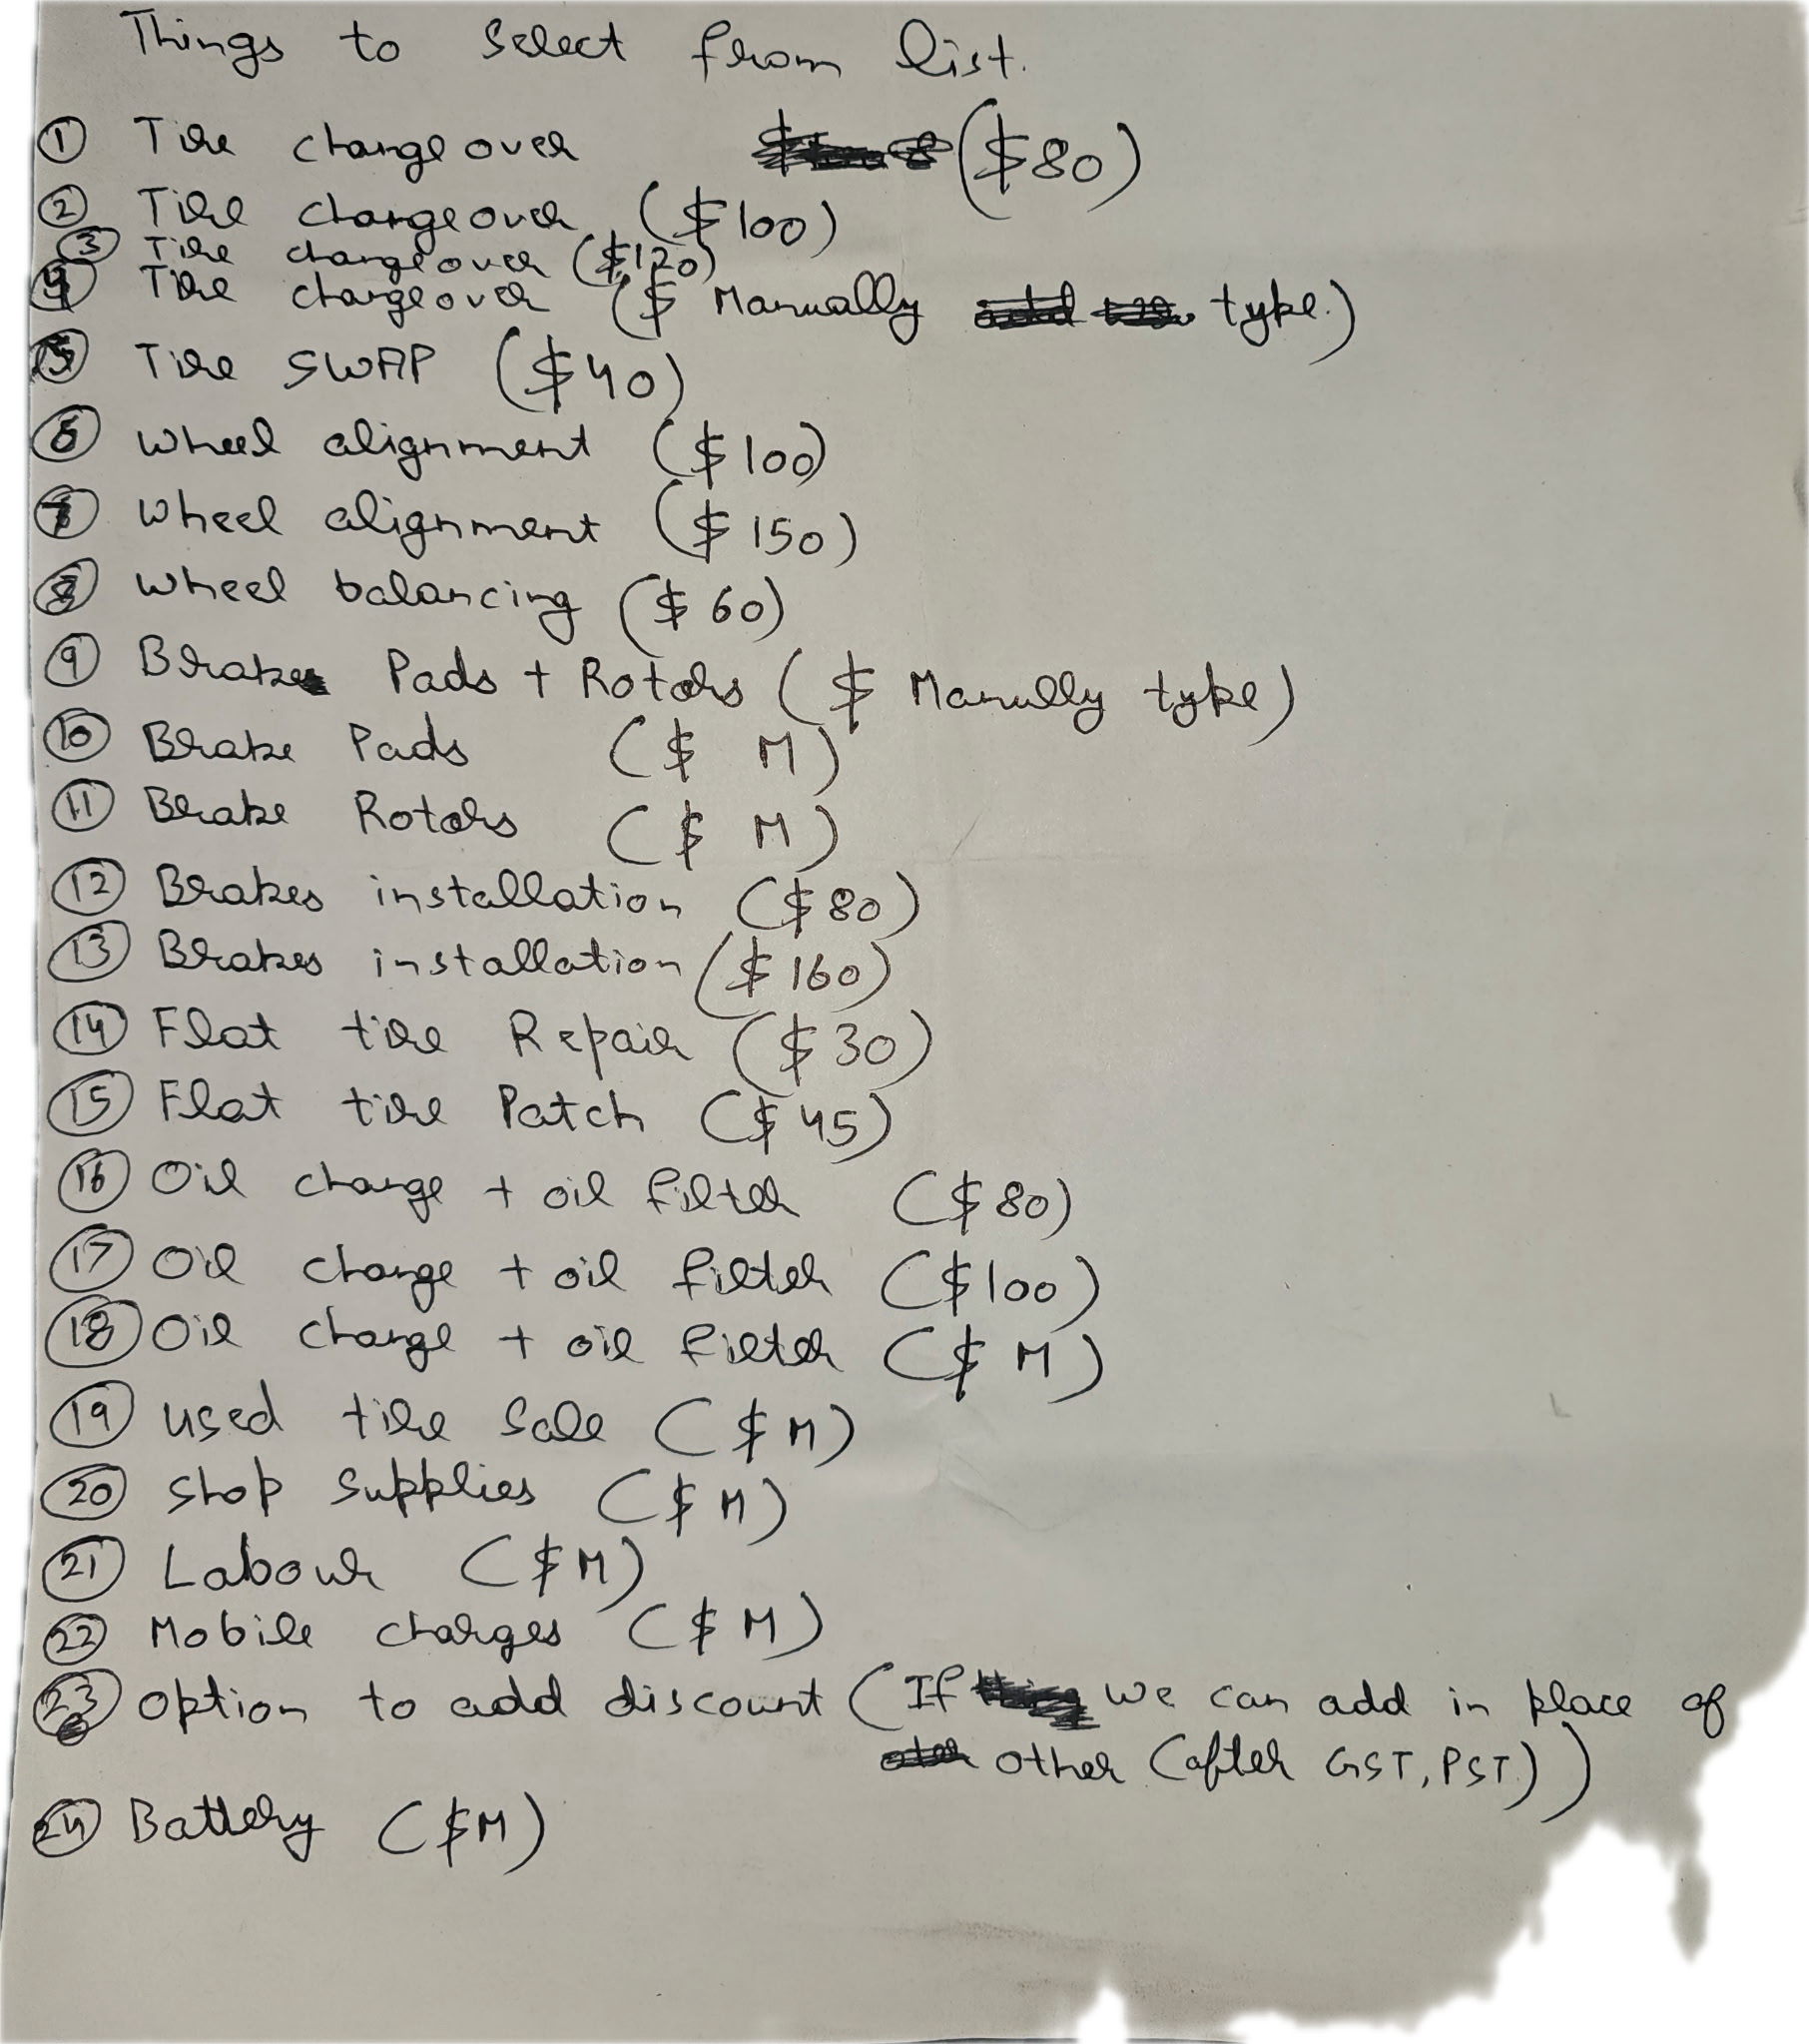 Things to Select from list.
① Tire changeover ($80)
② Tire changeover ($100)
③ Tire changeover ($120)
④ Tire changeover ($ Manually type.)
⑤ Tire SWAP ($40)
⑥ wheel alignment ($100)
⑦ wheel alignment ($150)
⑧ wheel balancing ($60)
⑨ Brake Pads + Rotors ($ Manully type)
⑩ Brake Pads ($ M)
⑪ Brake Rotors ($ M)
⑫ Brakes installation ($80)
⑬ Brakes installation ($160)
⑭ Flat tire Repair ($30)
⑮ Flat tire Patch ($45)
⑯ Oil change + oil filter ($80)
⑰ Oil change + oil filter ($100)
⑱ Oil change + oil filter ($ M)
⑲ used tire Sale ($M)
⑳ Shop Supplies ($M)
㉑ Labour ($M)
㉒ Mobile charges ($M)
㉓ Option to add discount (If we can add in place of
other (after GST, PST.))
㉔ Battery ($M)